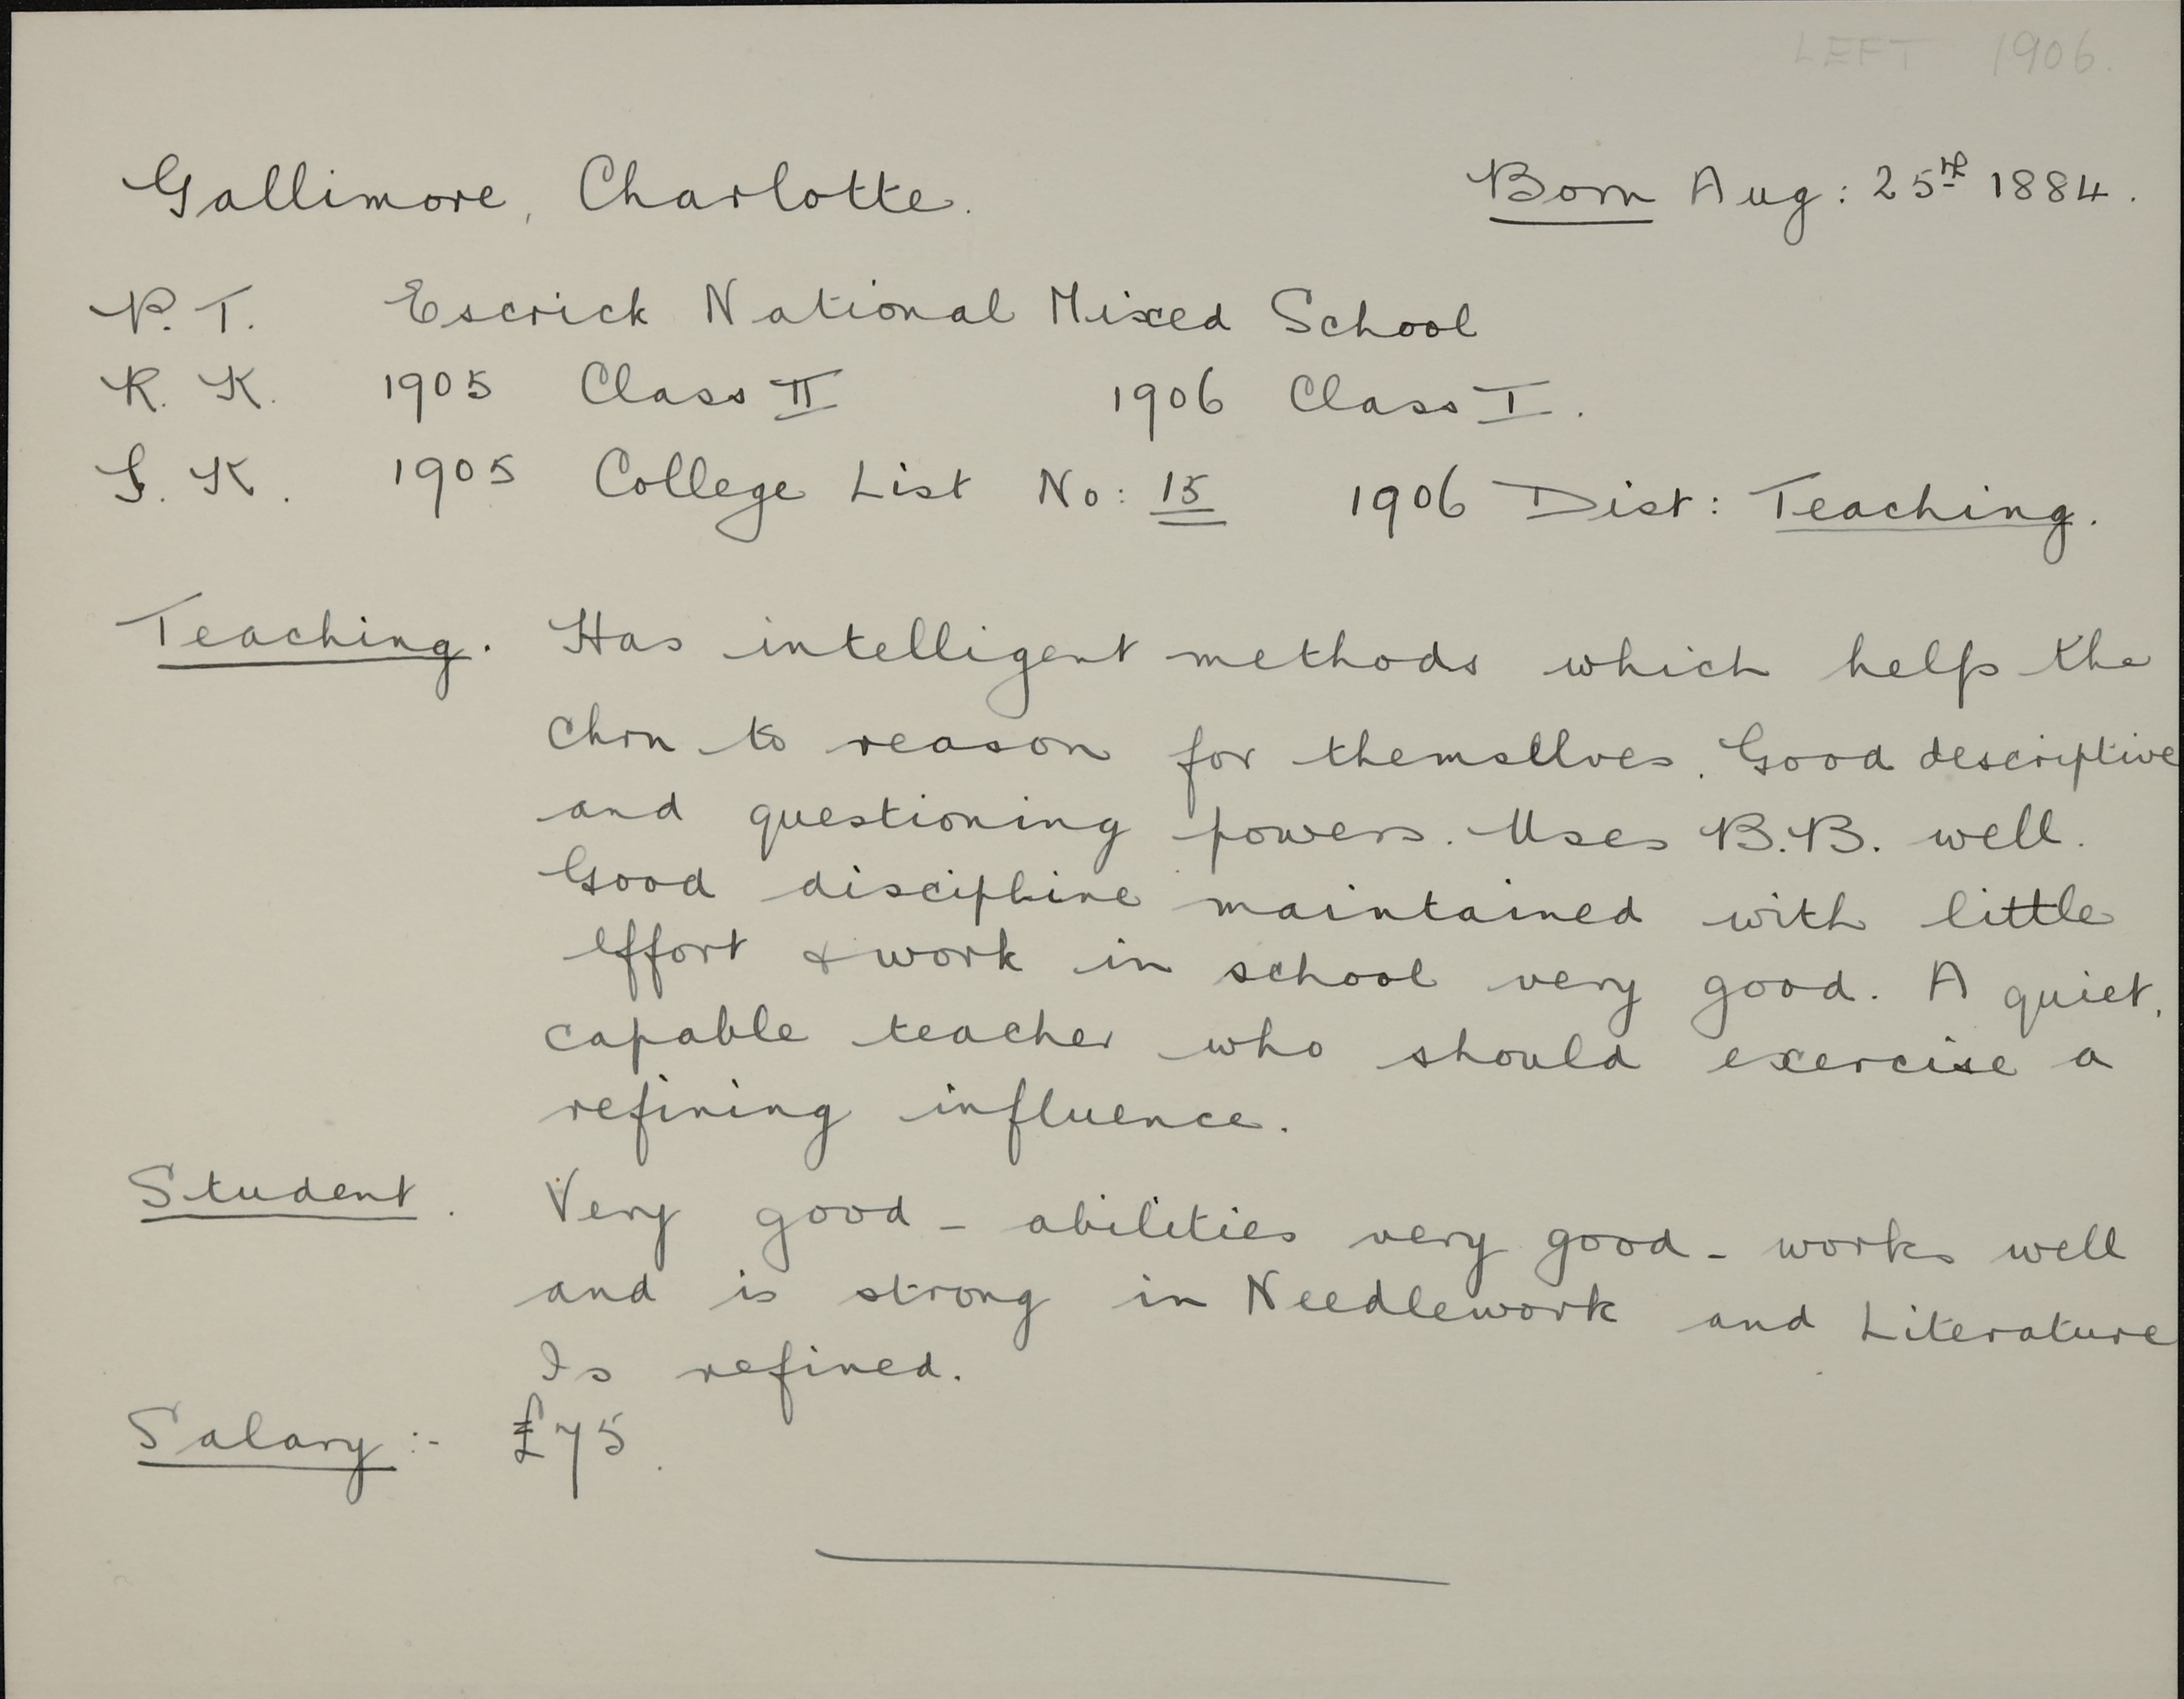 LEFT 1906.
Gallimore, Charlotte. Born Aug: 25th 1884.
P. T. Escrick National Mixed School
R. K. 1905 Class II 1906 Class I.
S. K. 1905 College List No: 15 1906 Dist: Teaching.
Teaching. Has intelligent methods which help the
chrn to reason for themselves. Good descriptive
and questioning powers. Uses B.B. well.
Good discipline maintained with little
effort & work in school very good. A quiet,
capable teacher who should exercise a
refining influence.
Student. Very good - abilities very good - works well
and is strong in Needlework and Literature
Is refined.
Salary :- £75.